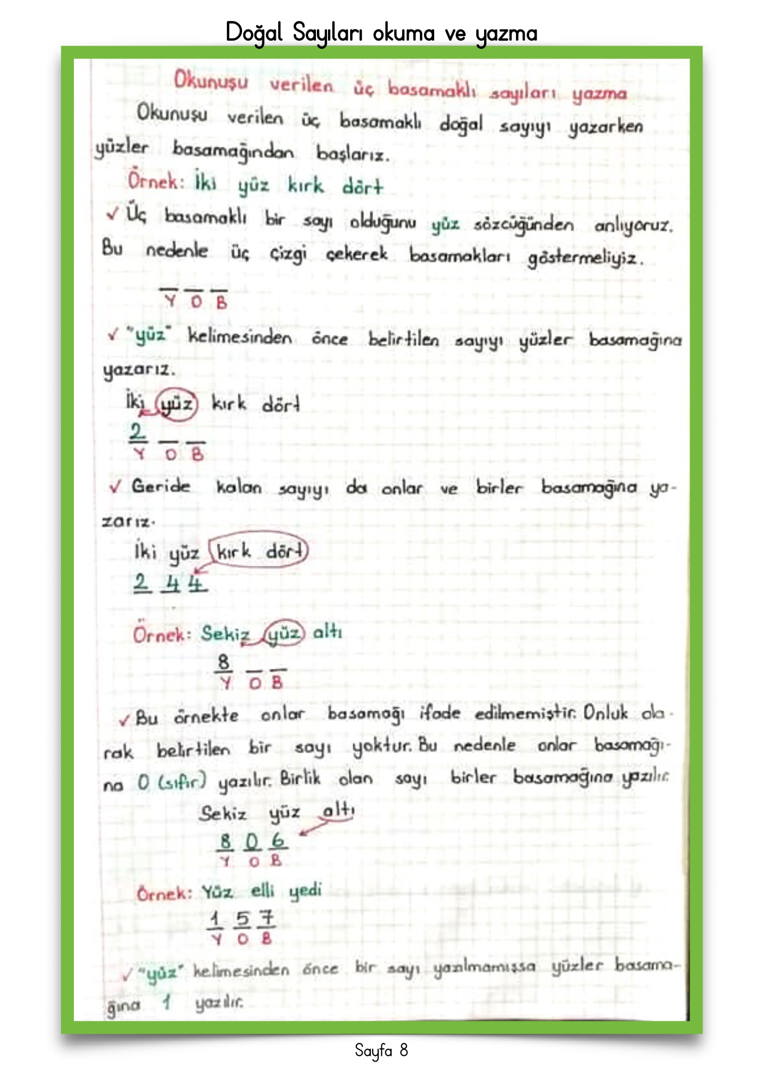 Doğal Sayıları okuma ve yazma
Okunuşu verilen üç basamaklı sayıları yazma
Okunuşu verilen üç basamaklı doğal sayıyı yazarken
yüzler basamağından başlarız.
Örnek: İki yüz kırk dört
✓ Üç basamaklı bir sayı olduğunu yüz sözcüğünden anlıyoruz.
Bu nedenle üç çizgi çekerek basamakları göstermeliyiz.
Y O B
✓ "yüz" kelimesinden önce belirtilen sayıyı yüzler basamağına
yazarız.
İki yüz kırk dört
2
Y O B
✓ Geride kalan sayıyı da onlar ve birler basamağına ya-
zarız.
İki yüz kırk dört
2 4 4
Örnek: Sekiz yüz altı
8
Y O B
✓ Bu örnekte onlar basamağı ifade edilmemiştir. Onluk ola-
rak belirtilen bir sayı yoktur. Bu nedenle onlar basamağı-
na 0 (sıfır) yazılır. Birlik olan sayı birler basamağına yazılır.
Sekiz yüz altı
8 0 6
Y O B
Örnek: Yüz elli yedi
1 5 7
Y O B
✓ "yüz" kelimesinden önce bir sayı yazılmamışsa yüzler basama-
ğına 1 yazılır.
Sayfa 8